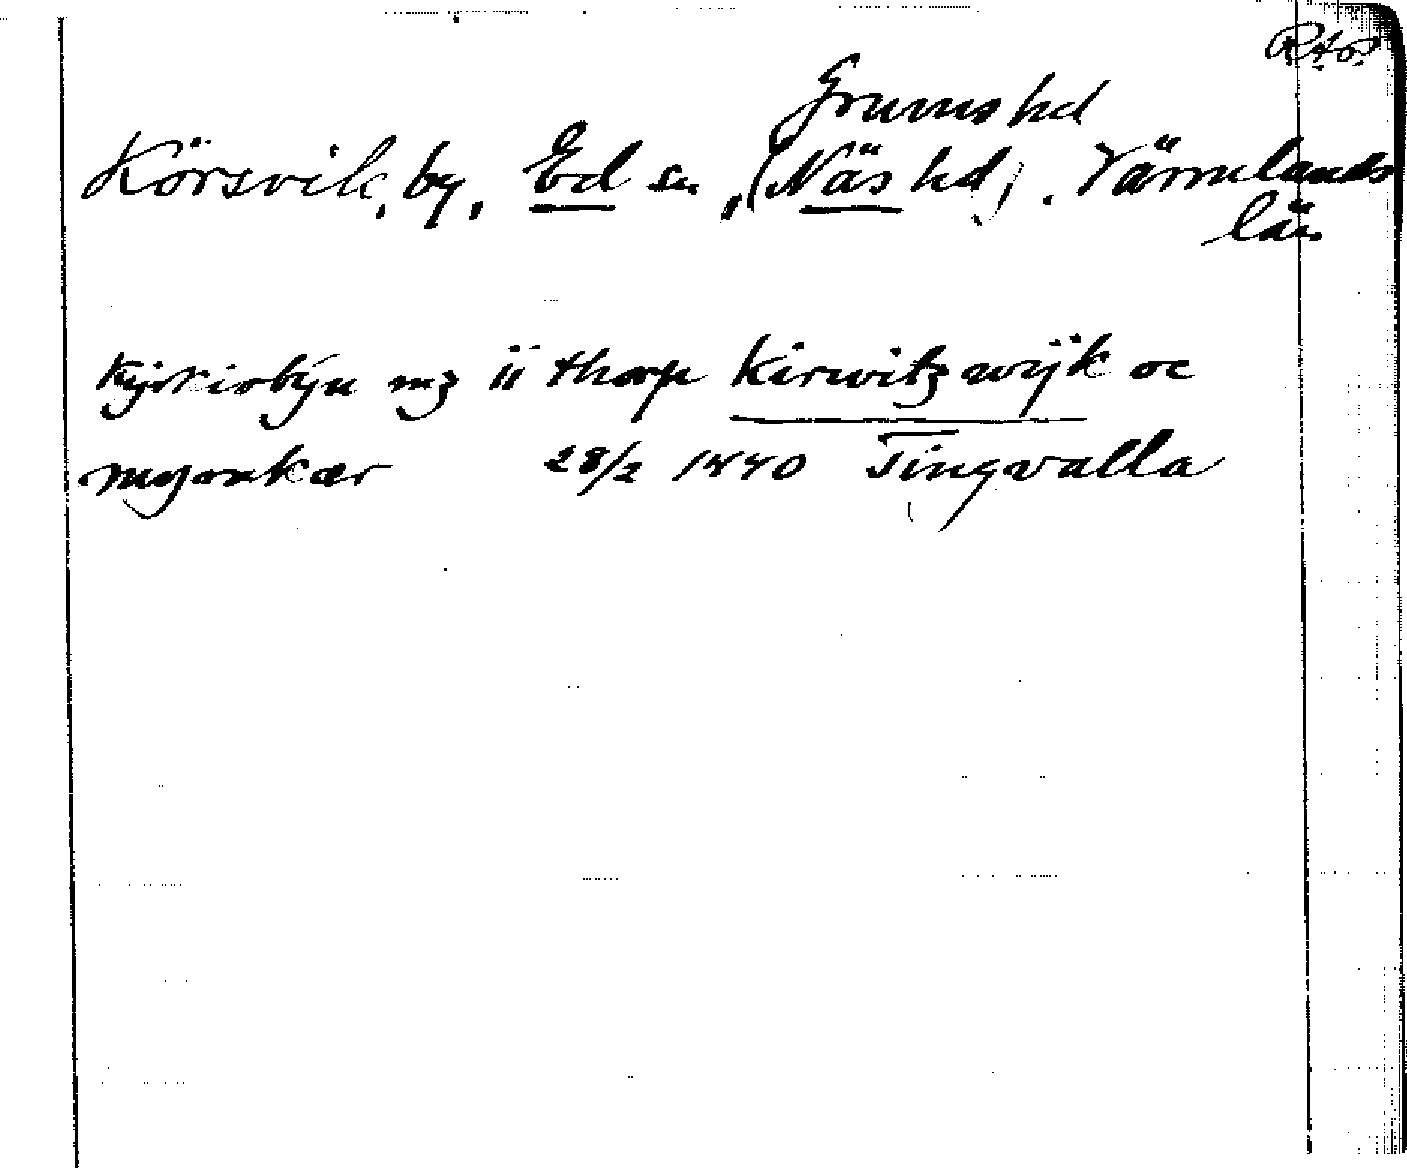 RAP
Grums hd
Körsvik, by, Ed sn, (Näs hd). Värmlands
län
Kyrkiobyn mz ii thorp Kirwitz wijk oc
myorkær 28/2 1440 Tingvalla